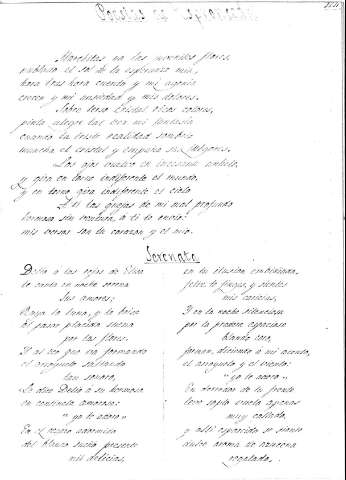 Poesías de Espronceda
Marchitas ya las juveniles flores,
nublado el sol de la esperanza mía,
hora tras hora cuento y mi agonía
crecen y mi ansiedad y mis dolores.
Sobre terso cristal ricos colores,
pinta alegre tal vez mi fantasía
cuando la triste realidad sombría
mancha el cristal y empaña sus fulgores.
Los ojos vuelvo en incesante anhelo,
y gira en torno indiferente el mundo,
y en torno gira indiferente el cielo
A ti las quejas de mi mal profundo
hermosa sin ventura, a ti te envío:
mis versos son tu corazon y el mio.
Serenata
Delio a las rejas de Elisa
le canta en noche serena
sus amores;
Raya la luna, y la brisa
al pasar placida suena
por las flores.
Y al eco que va formando
el arroyuelo saltando
tan sonoro,
Le dice Delio a su hermosa
en cantinela amorosa:
"yo te adoro"
En el regazo adormida
del blando sueño presente
mil delicias,
en tu ilusion embebida,
feliz te finges, y sientes
mis caricias.
Y en la noche silenciosa
por la pradera espaciosa
blando coro,
forman, diciendo a mi acento,
el arroyuelo y el viento:
"yo te adoro"
En derredor de tu frente
leve soplo vuela apenas
muy callado,
y allí esparcido se siente
dulce aroma de azucena
regalado,